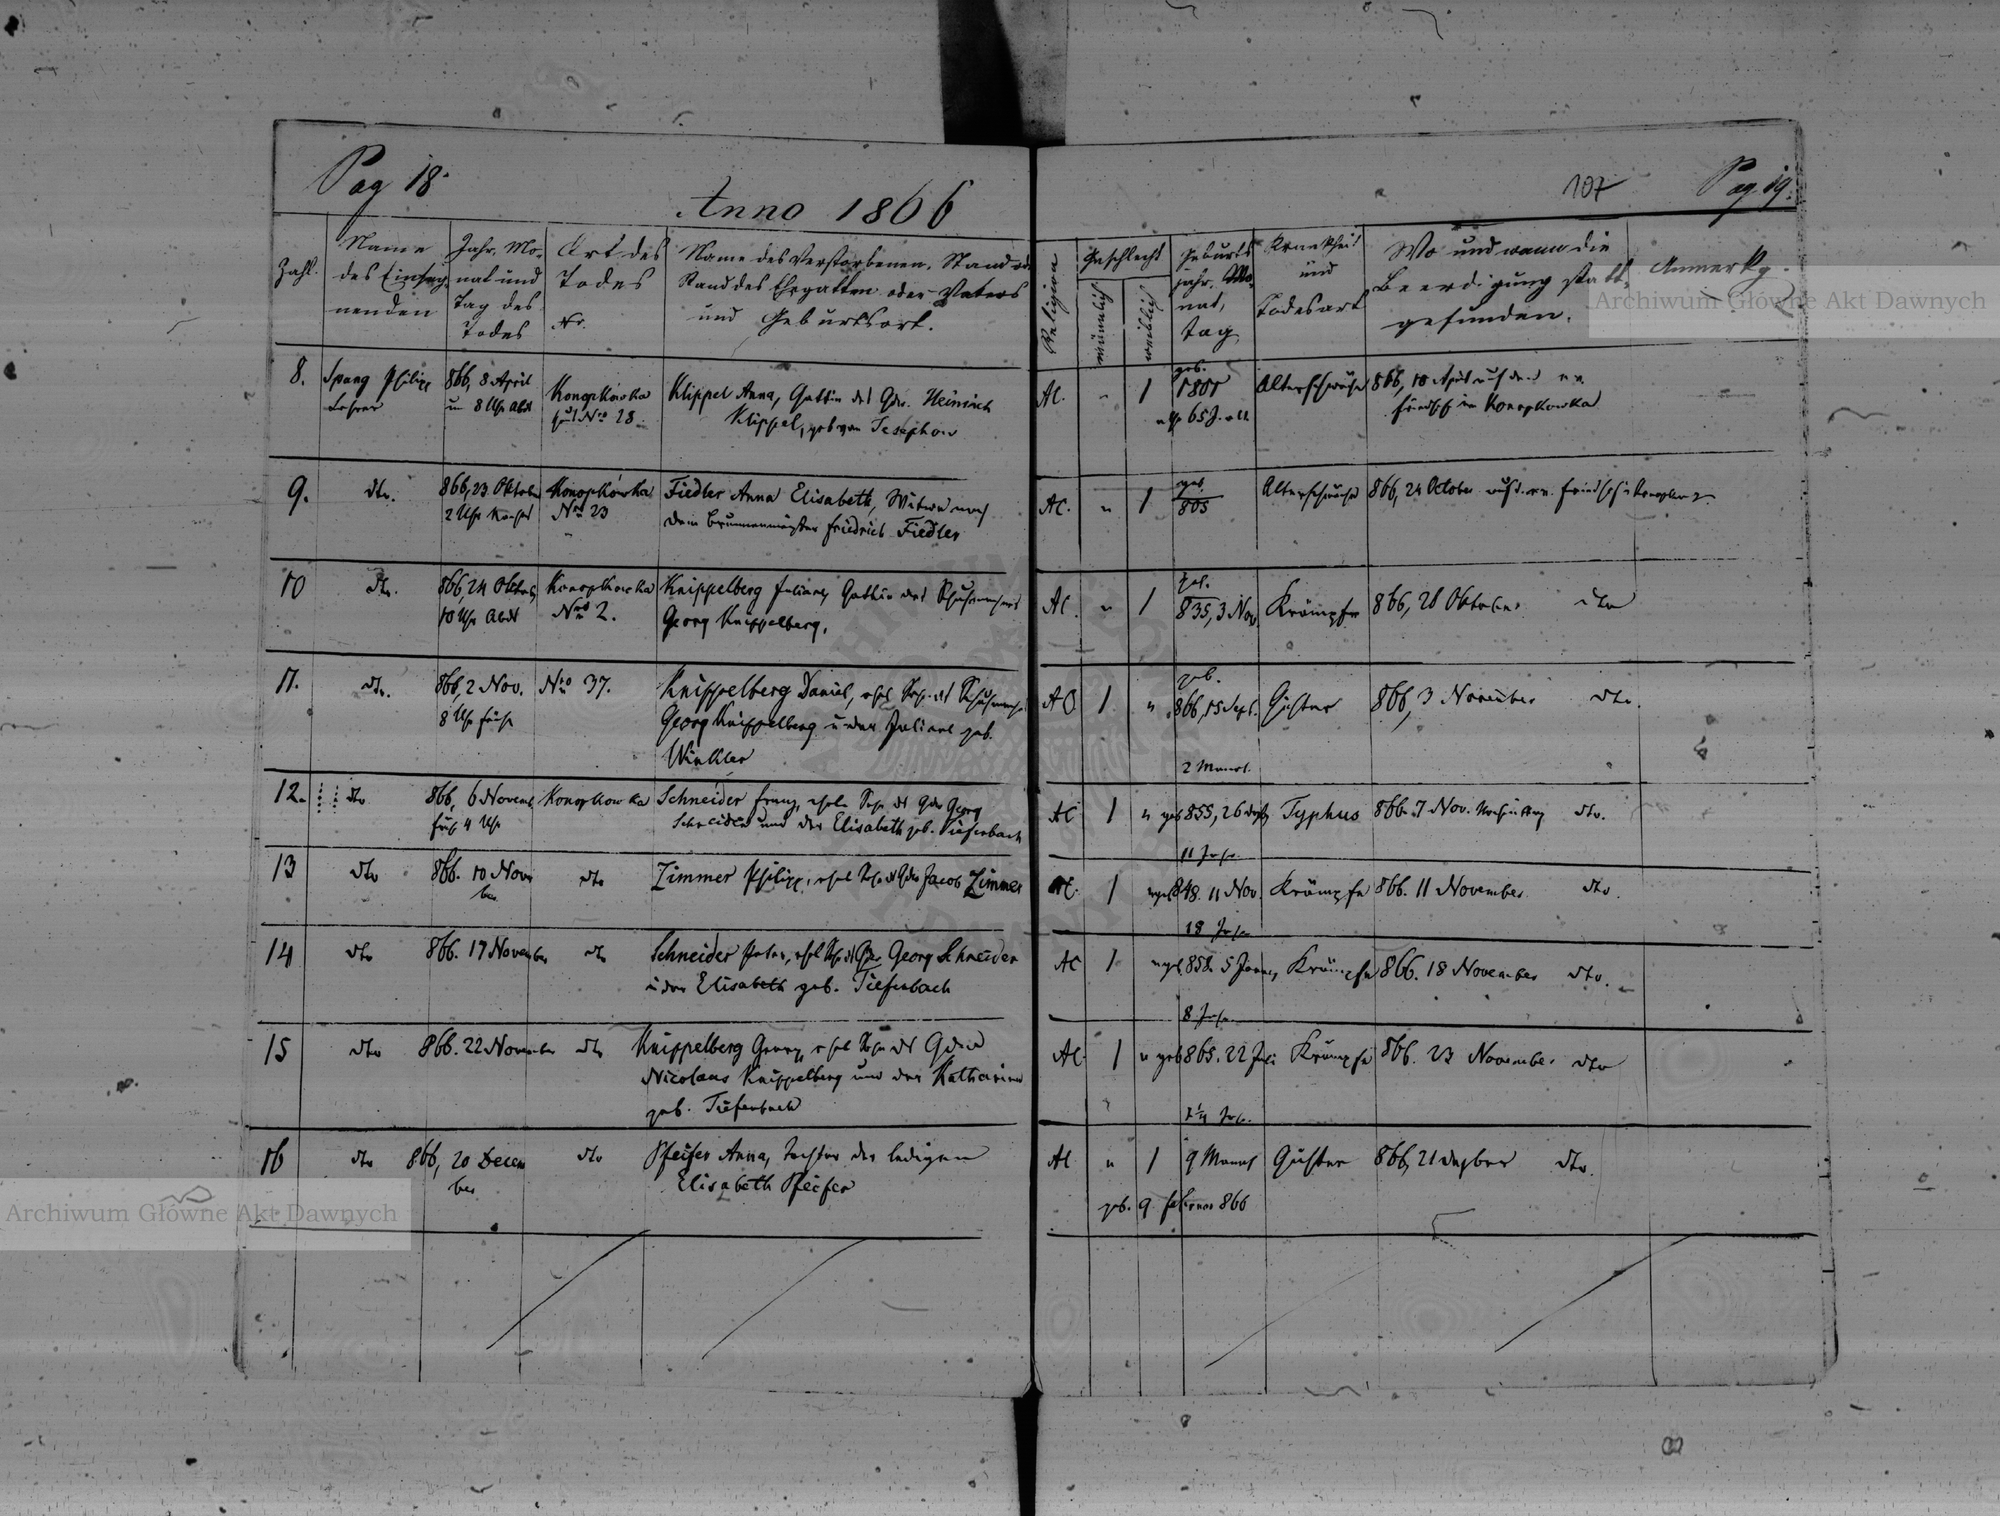 Pag 18.
Anno 1866
Zahl.
Name
des Einseg-
nenden
Jahr, Mo-
nat und
Tag des
Todes
Ort des
Todes
Nr.
Name des Verstorbenen, Stand od.
Stand des Ehegatten oder Vaters
und Geburtsort.
8.
Spang Philipp
Lehrer
866, 8 April
um 8 Uhr Abd
Konopkowka
Nro 28.
Klippel Anna, Gattin des Gdr. Heinrich
Klippel, geb von Josephow
9.
dto.
866, 23 Oktober
2 Uhr
Konopkówka
Nro 23
Fiedler Anna Elisabeth, Witwe nach
dem Brunnenmeister Friedrich Fiedler
10
dto.
866, 24 Oktob,
10 Uhr Abds
Konopkowka
Nro 2.
Knippelberg Juliane, Gattin des Schuhmachers
Georg Knippelberg.
11.
dto.
866, 2 Nov.
8 Uhr früh
Nro 37.
Knippelberg Daniel, ehel Sohn des
Georg Knippelberg u der Juliane geb.
Winkler
12.
dto
866, 6 Novemb
früh 4 Uhr
Konopkowka
Schneider Franz, ehel. Sohn des Gdr Georg
Schneider und der Elisabeth geb. Tiefenbach
13
dto
866. 10 Novem
ber
dto
Zimmer Philipp, ehel Sohn des Gdr Jacob Zimmer
14
dto
866. 17 November
dto
Schneider Peter, ehel Sohn des Gdr Georg Schneider
u der Elisabeth geb. Tiefenbach
15
dto
866. 22 November
dto
Knippelberg Georg, ehel Sohn des
Nicolaus Knippelberg und der Katharina
geb. Tiefenbach
16
dto
866, 20 Decem
ber
dto
Pfeifer Anna, Tochter der ledigen
Elisabeth Pfeifer
107
Pag. 19.
Religion
Geschlecht
männlich
weiblich
Geburts
jahr, Mo-
nat,
Tag
Krankheit
und
Todesart
Wo und wann die
Beerdigung statt-
gefunden.
Anmerkg.
AC.
"
1
geb.
1801
65 J. alt
Altersschwäche
866, 10 April auf dem
Friedhf in Konopkowka
AC.
"
1
geb.
805
Altersschwäche
866, 24 October
AC.
"
1
geb.
835, 3 Nov.
Krämpfe
866, 26 Oktober
dto
AC
1
"
geb.
866, 15 Sept.
2 Monat.
Gichter
866, 3 November
dto.
AC
1
" geb 855, 26
11 Jahr
Typhus
866. 7 Nov. Nachmittag
dto.
AC.
1
" geb 848. 11 Nov.
18 Jahr
Krämpfe
866. 11 November
dto.
AC
1
" geb 858. 5
8 Jahr
Krämpfe
866. 18 November
dto.
AC.
1
" geb 865. 22 Juli
1 1/4 Jahr.
Krämpfe
866. 23 November
dto
AC.
"
1
9 Monat
Gichter
866, 21 Dezber
dto.
geb. 9 Februar 866
Archiwum Główne Akt Dawnych
Archiwum Główne Akt Dawnych